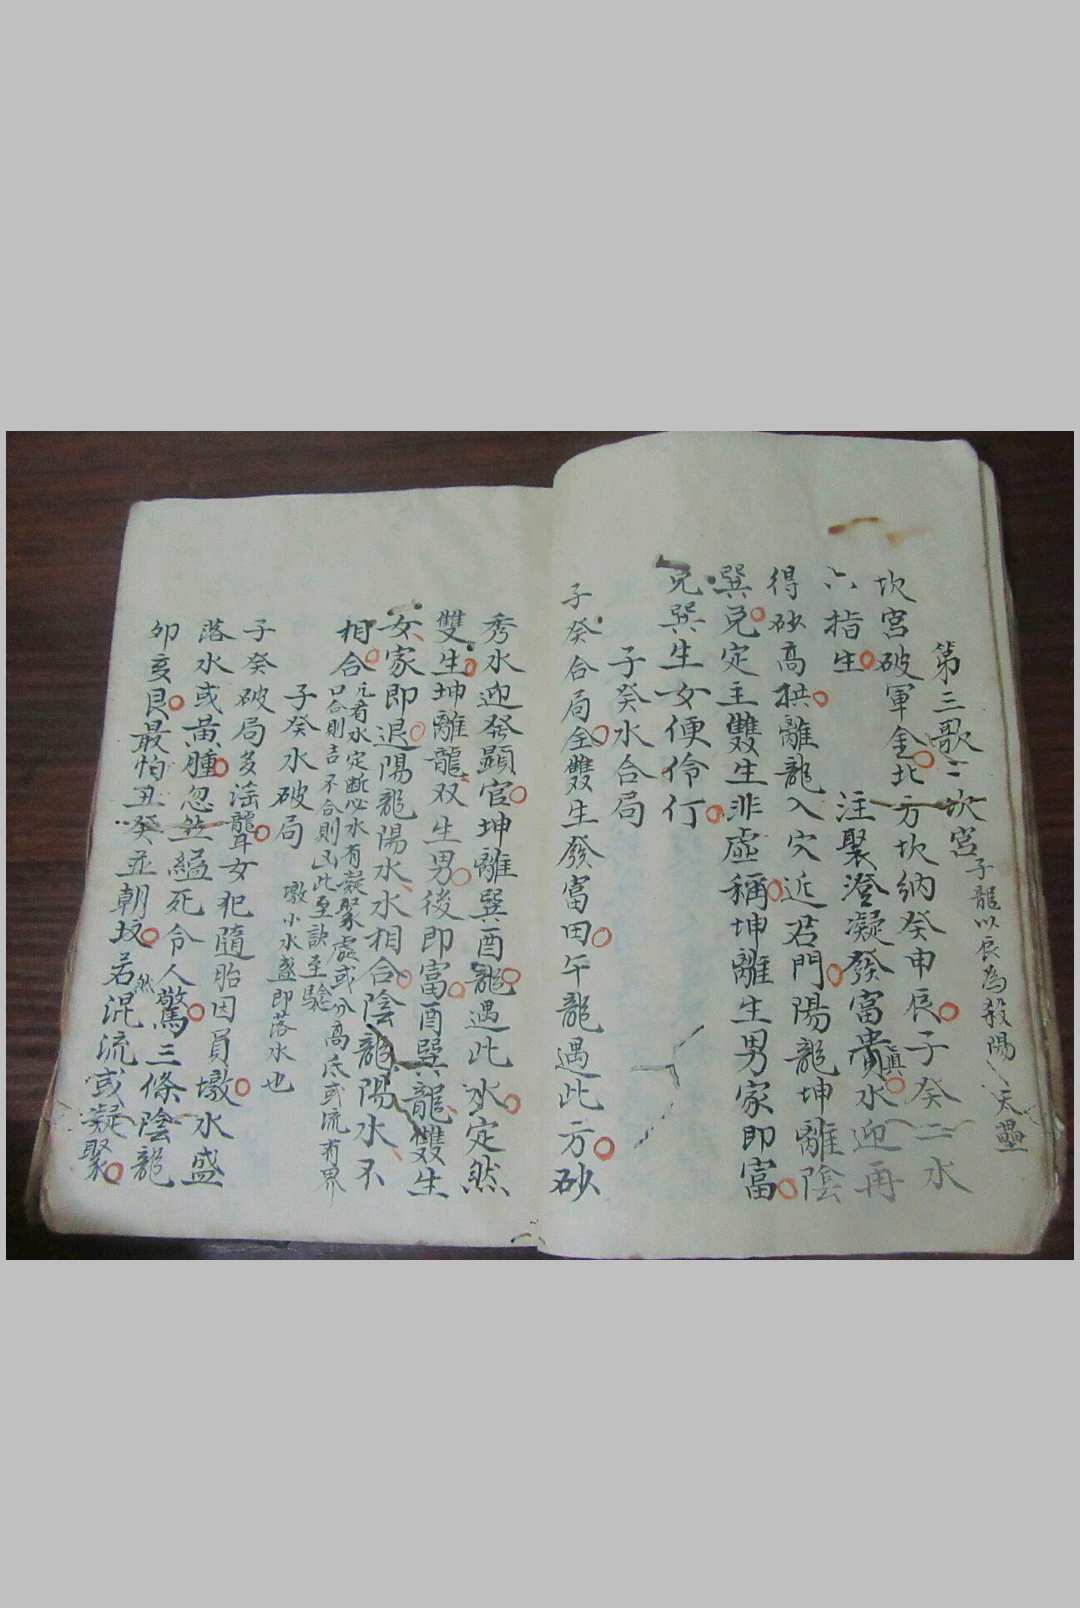 第三歌 二坎宮 子龍以辰為殺陽 天壘
坎宮破軍金北方坎納癸申辰子癸二水
注聚澄凝發富貴水迎再
六指生
得砂高拱離龍入穴近君門陽龍坤離陰
巽兌定主雙生非虛稱坤離生男家即富
兌巽生女便伶仃
子癸水合局
子癸合局全雙生發富田午龍遇此方砂
秀水迎發顯官坤離巽酉龍遇此水定然
雙生坤離龍双生男後即富酉巽龍雙生
女家即退陽龍陽水水相合陰龍陽水不
相合 凡看水定斷必水有凝聚處或分高低或流有界
只合則吉不合則凶此至訣至驗
子癸水破局 墩小水盛即落水也
子癸破局多淫聾女犯隨胎因員墩水盛
落水或黃腫忽然縊死令人驚三條陰龍
卯亥艮最怕丑癸並朝坟若混流或凝聚